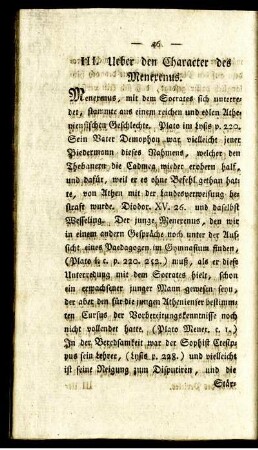 — 46 —
III. Ueber den Character des
Menexenus.
Menexenus, mit dem Socrates sich unterre-
det, stammte aus einem reichen und edlen Athe-
niensischen Geschlechte. Plato im Lysis p. 220.
Sein Vater Demophon war vielleicht jener
Biedermann dieses Nahmens, welcher den
Thebanern die Cadmea wieder erobern half,
und dafür, weil er es ohne Befehl gethan hat-
te, von Athen mit der Landesverweisung be-
straft wurde. Diodor. XV. 26. und daselbst
Wesseling. Der junge Menexenus, den wir
in einem andern Gespräche noch unter der Auf-
sicht eines Paedagogen im Gymnasium finden,
(Plato l. c. p. 220. 252.) muß, als er diese
Unterredung mit dem Socrates hielt, schon
ein erwachsener junger Mann gewesen seyn,
der aber den für die jungen Athenienser bestimm-
ten Cursus der Vorbereitungskenntnisse noch
nicht vollendet hatte. (Plato Menex. c. 1.)
In der Beredsamkeit war der Sophist Ctesip-
pus sein Lehrer, (Lysis p. 228.) und vielleicht
ist seine Neigung zum Disputiren, und die
Stär-